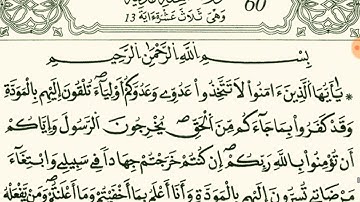 60
وَهِيَ ثَلَاثَ عَشْرَةَ ءَايَة 13
بِسْمِ اللَّهِ الرَّحْمَٰنِ الرَّحِيمِ
يَٰأَيُّهَا الَّذِينَ ءَامَنُوا لَا تَتَّخِذُوا عَدُوِّي وَعَدُوَّكُمْ أَوْلِيَاءَ تُلْقُونَ إِلَيْهِم بِالْمَوَدَّةِ
وَقَدْ كَفَرُوا بِمَا جَاءَكُم مِّنَ الْحَقِّ يُخْرِجُونَ الرَّسُولَ وَإِيَّاكُمْ
أَن تُؤْمِنُوا بِاللَّهِ رَبِّكُمْ إِن كُنتُمْ خَرَجْتُمْ جِهَادًا فِي سَبِيلِي وَابْتِغَاءَ
مَرْضَاتِي تُسِرُّونَ إِلَيْهِم بِالْمَوَدَّةِ وَأَنَا أَعْلَمُ بِمَا أَخْفَيْتُمْ وَمَا أَعْلَنتُمْ وَمَن يَفْعَلْهُ